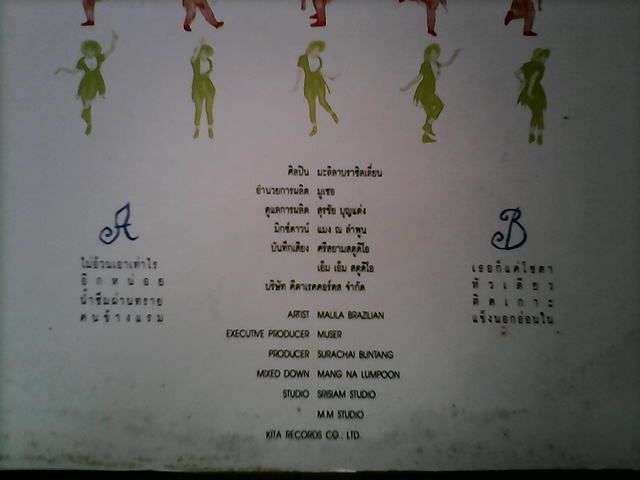 ศิลปิน มะลิลาบราซิลเลี่ยน
อำนวยการผลิต มูเซอ
ดูแลการผลิต สุรชัย บุญแต่ง
มิกซ์ดาวน์ แมง ณ ลำพูน
บันทึกเสียง ศรีสยามสตูดิโอ
เอ็ม เอ็ม สตูดิโอ
บริษัท คีตาเรคคอร์ดส จำกัด
ARTIST MALILA BRAZILIAN
EXECUTIVE PRODUCER MUSER
PRODUCER SURACHAI BUNTANG
MIXED DOWN MANG NA LUMPOON
STUDIO SRISIAM STUDIO
M.M STUDIO
KITA RECORDS CO., LTD.
A
ไม่อ้วนเอาเท่าไร
อีกหน่อย
น้ำซึมผ่านทราย
คนข้างแรม
B
เธอก็แค่โซดา
ตัวเดียว
ติดเกาะ
แข็งนอกอ่อนใน